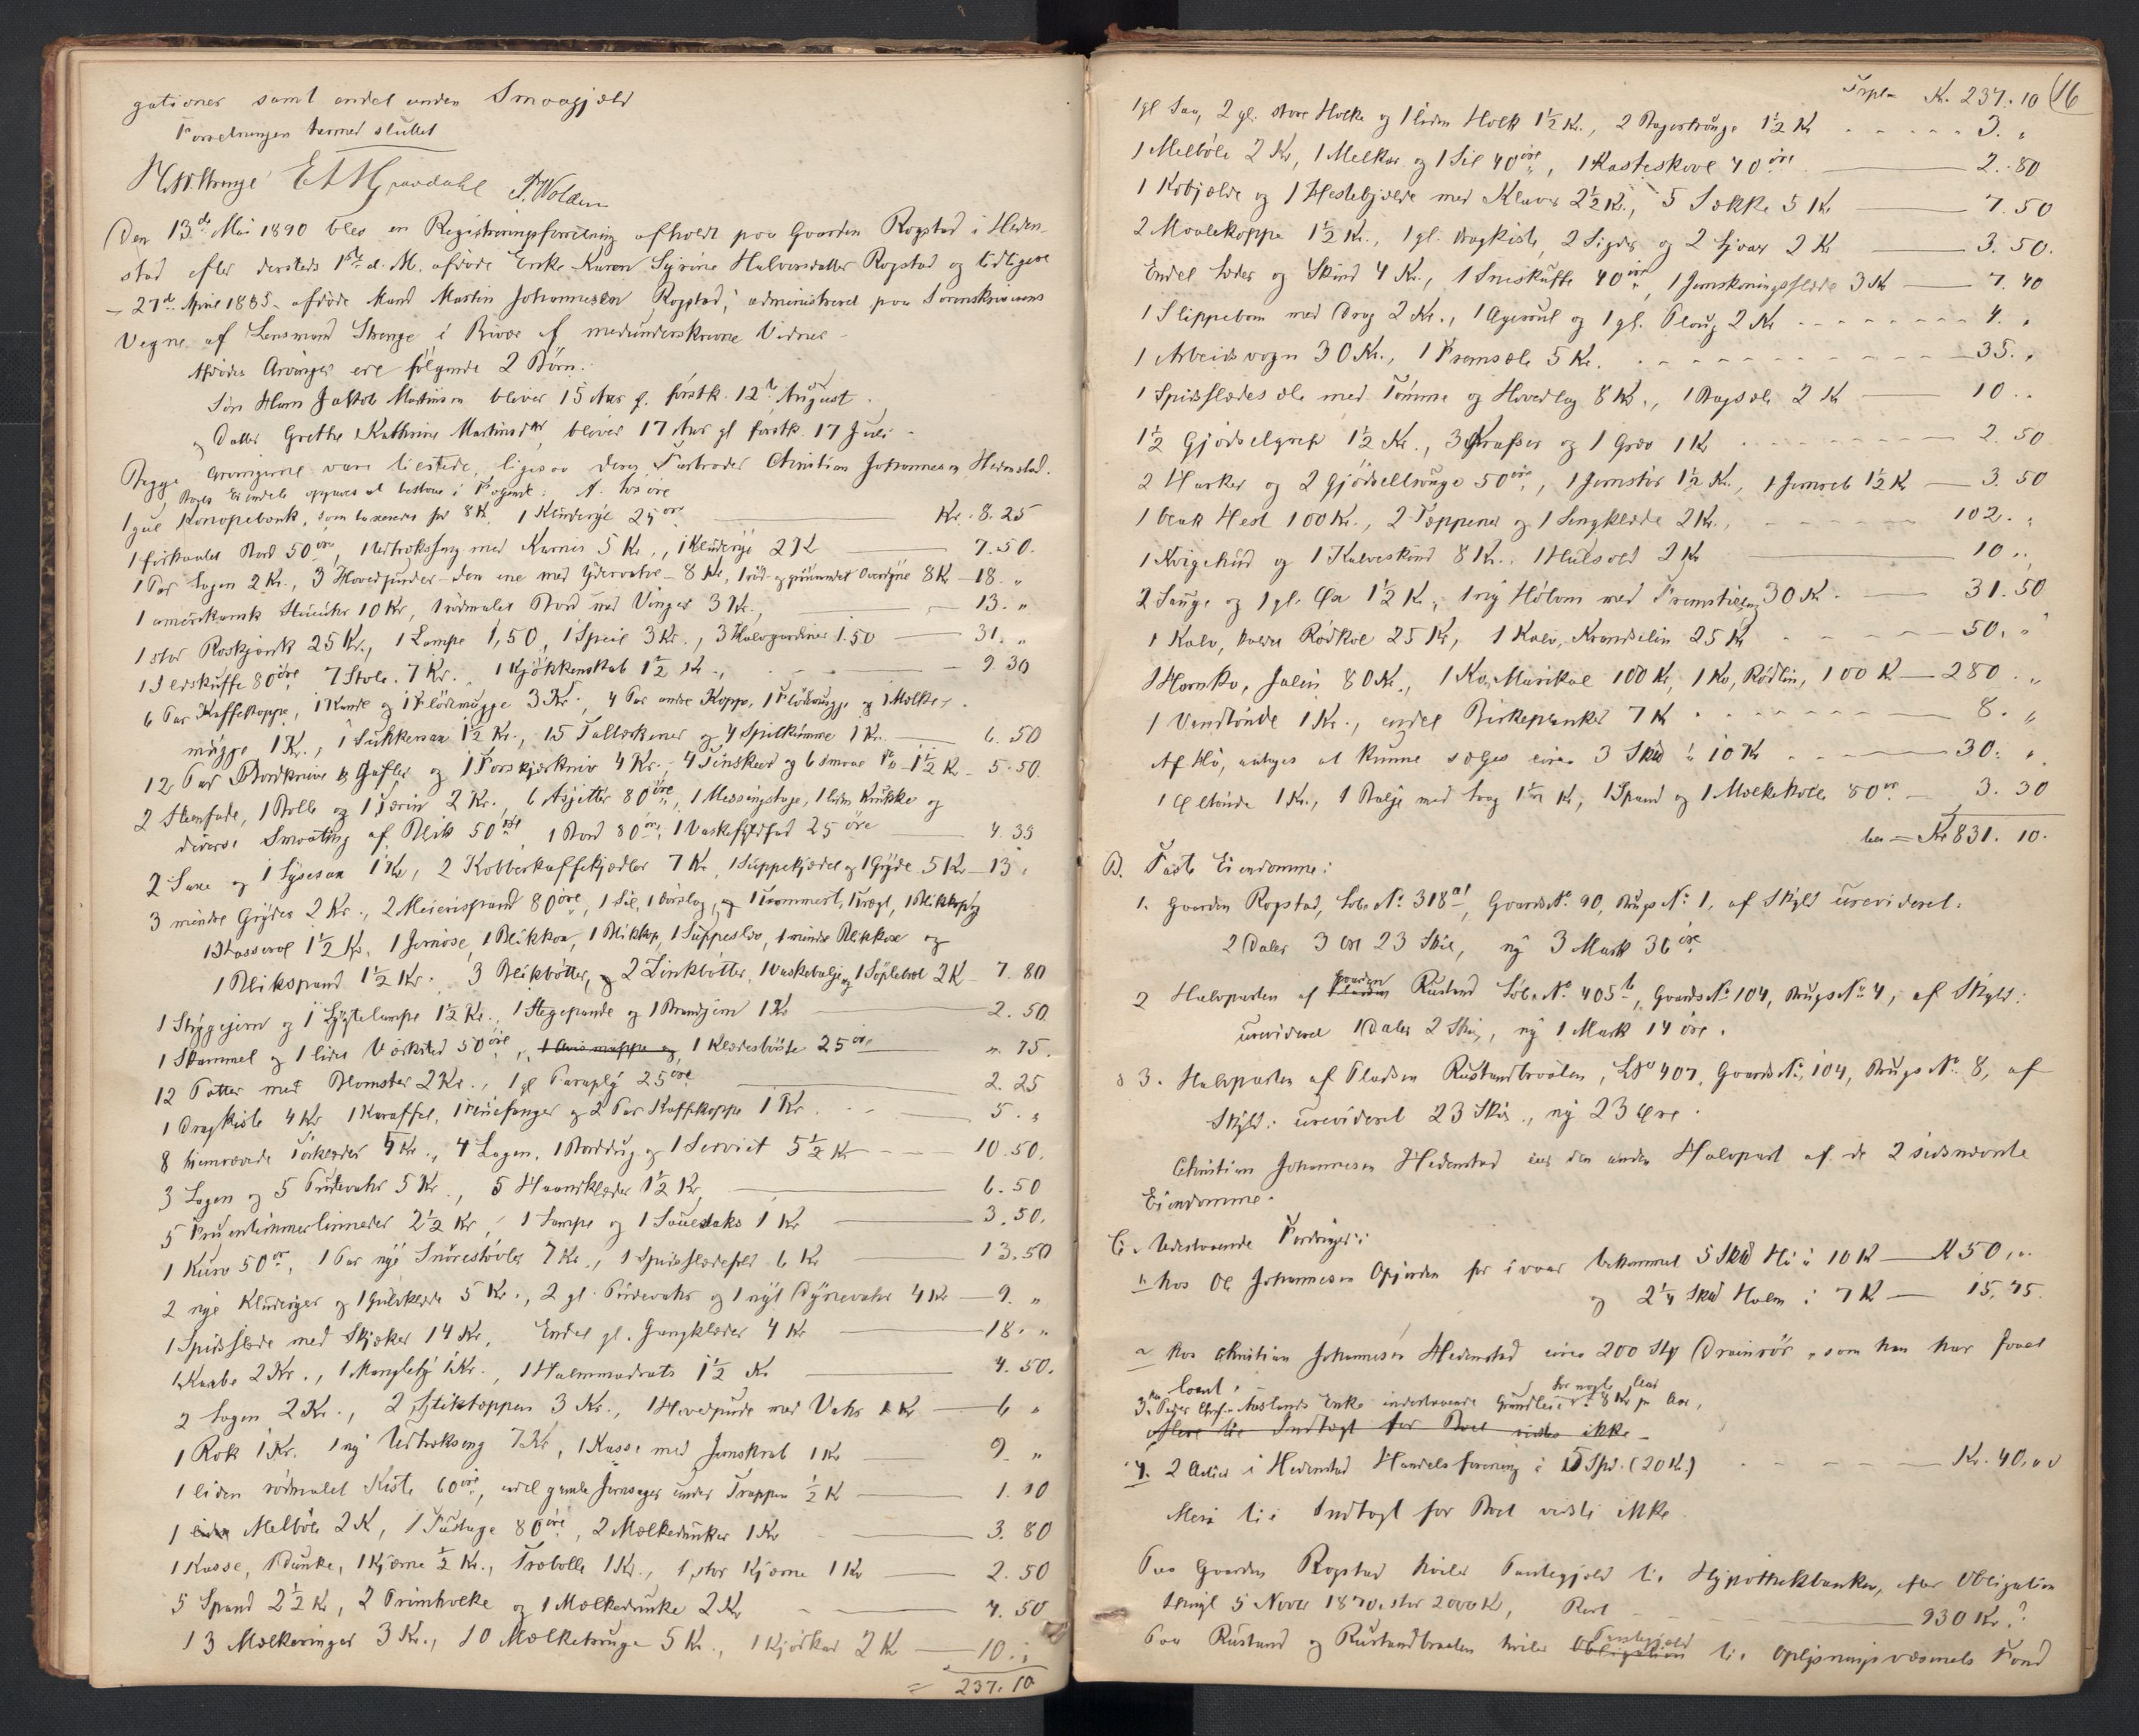 gationer samt endel anden Smaagjæld
Forretningen hermed sluttet
Den 13de Mai 1890 blev en Registreringsforretning afholdt paa Gaarden Rogstad i Heden-
stad efter dersteds 1ste d. M. afdøde Enke Karen Syrine Halvorsdatter Rogstad og tidligere
– 27de April 1885 – afdøde Mand Martin Johannesen Rogstad, administreret paa Sorenskriverens
Vegne af Lensmand Strenge i Bivær af medunderskrevne Vidner –
Afdødes Arvinger ere følgende 2 Børn:
Søn Hans Jakob Martinsen bliver 15 Aar g. førstk. 12te August.
og Datter Grethe Kathrine Martinsdtr bliver 17 Aar gl førstk. 17 Juli.
Begge Arvingerne vare tilstede, ligesaa deres Farbroder Christian Johannesen Hedenstad.
Boets Eiendele opgaves at bestaae i Følgende: A. Løsøre
1 gul Kanapebænk, som taxeredes for 8 K. 1 Kluderye 25 øre Kr. 8.25
1 firkantet Bord 50 øre, 1 Udtræksseng med Karnis 5 Kr., 1 Kluderye 2 Kr 7.50.
1 Par Lagen 2 Kr., 3 Hovedpuder – den ene med Ydervahr – 8 Kr, 1 rød- og grønrandet Overdyne 8 K – 18. "
1 amerikansk Stueuhr 10 Kr, 1 rødmalet Bord med Vinger 3 Kr., 13. "
1 stor Roskjænk 25 Kr., 1 Lampe 1,50, 1 Speil 3 Kr., 3 Halvgardiner 1.50 31. "
1 Ildskuffe 80 øre 7 Stole. 7 Kr. 1 Kjøkkenskab 1½ Kr., 9.30
6 Par Kaffekoppe, 1 Kande og 1 Flødemugge 3 Kr. 4 Par andre Koppe, 1 Flødemugge og 1 Melke-
mugge 1 Kr., 1 Sukkersax 1½ Kr., 15 Tallerkener og 4 Spilkumme 1 Kr. 6.50
12 Par Bordknive & Gafler og 1 Forskjærkniv 4 Kr., 4 Tinskeer og 6 smaae Do 1½ K – 5.50.
2 Stenfade, 1 Bolle og 1 Terin 2 Kr. 6 Asjetter 80 øre, 1 Messingstage, 1 liden Krukke og
diverse Smaating af Blik 50 øre, 1 Bord 80 øre, 1 Vaskefad 25 øre 4.35
2 Saxe og 1 Lysesax 1 Kr, 2 Kobberkaffekjedler 7 Kr, 1 Suppekjedel og 1 Gryde 5 Kr – 13 "
3 mindre Gryder 2 Kr., 2 Meierispand 80 øre, 1 Sil, 1 Dørslag, og 1 Trommert, Tragt, 1 Blik
1 Kasserol 1½ Kr. 1 Jernøse, 1 Blikkar, 1 Blikkop, 1 Suppeslev, 1 mindre Blikkar og
1 Blikspand 1½ Kr. 3 Blikbøtter, og 2 Zinkbøtter, 1 Vaskebalje og 1 Søplebræt 2 K 7.80
1 Strygejern og 1 Lygtelampe 1½ Kr., 1 Stegepande og 1 Brandjern 1 Kr 2.50.
1 Skammel og 1 lidet 50 øre, 1 Avismappe og 1 Klædesbørste 25 øre ". 75.
12 Potter med Blomster 2 Kr., 1 gl Paraply 25 øre 2.25
1 Dragkiste 4 Kr 1 Karaffel, 1 Fluefanger og 2 Par Kaffekoppe 1 Kr. 5. "
8 hjemvævede Tørklæder 5 Kr., 4 Lagen, 1 Borddug og 1 Serviet 5½ K 10.50.
3 Lagen og 5 Pudevahr 5 Kr., 5 Haandklæder 1½ Kr, 6.50
5 Fruentimmerlinneder 2½ Kr, 1 Lampe og 1 Sauesaks 1 Kr 3.50.
1 Kurv 50 ør, 1 Par nye Snørestøvler 7 Kr., 1 Spidsslædefeld 6 Kr 13.50
2 nye Kluderyer og 1 Gulvklæde 5 Kr., 2 gl. Pudevahr og 1 nyt Dynevahr 4 Kr – 9. "
1 Spidsslæde med Skjæker 14 Kr, Endel gl. Gangklæder 4 Kr 18. "
1 Kaabe 2 Kr., 1 Mangletøj 1 Kr., 1 Halmmadrats 1½ Kr 4.50.
2 Lagen 2 Kr., 2 Stiktæppen 3 Kr., 1 Hovedpude med Vahr 1 Kr 6 "
1 Rok 1 Kr. 1 ny Udtrækseng 7 Kr, 1 Kasse med Jernskrab 1 Kr 9. "
1 liden rødmalet Kiste 60 øre, endel gamle Jernsager under Trappen ½ K 1.10
1 liden Melbøle 2 K, 1 Fustage 80 øre, 2 Mælkedunker 1 Kr 3.80
1 Kasse, 1 Dunke, 1 Kjærne ½ Kr., Træbolle 1 Kr., 1 stor Kjærne 1 Kr 2.50
5 Spand 2½ Kr, 2 Primholke og 1 Mælkedunke 2 Kr 4.50
13 Mælkeringer 3 Kr., 10 Mælketrauge 5 Kr., 1 Kjørkar 2 K 10. "
= 237.10
Trpt= Kr. 237.10 16
1 gl Sav, 2 gl. store Holke og 1 liden Holk 1½ Kr., 2 Bagertrauge 1½ Kr 3. "
1 Melbøle 2 Kr, 1 Melkar og 1 Sil 40 øre, 1 Kasteskovl 40 øre 2.80
1 Kobjælde og 1 Hestebjælde med Klaver 2½ Kr., 5 Sække 5 Kr 7.50
2 Maalekoppe 1½ Kr., 1 gl. Dragkiste, 2 Sigder og 2 Ljaaer 2 Kr 3.50.
Endel Læder og Skind 4 Kr., 1 Sneskuffe 40 øre, 1 Jernskoningsslæde 3 Kr 7.40
1 Slippebom med Drag 2 Kr., 1 Agerrul og 1 gl. Ploug 2 Kr 4. "
1 Arbeidsvogn 30 Kr., 1 Fremsele 5 Kr. 35. "
1 Spidsslædesele med Tømme og Hovedlag 8 Kr., 1 Bagsele 2 Kr 10. "
1½ Gjødselgreb 1½ Kr., 3 Krafser og 1 Grev 1 Kr 2.50
2 Harker og 2 Gjødseltrauge 50 øre, 1 Jernstør 1½ Kr., 1 Jernreb 1½ Kr 3.50
1 blak Hest 100 Kr., 2 Tæppener og 1 Sengklæde 2 Kr., 102. "
1 Kvigehud og 1 Kalveskind 8 Kr., 1 Hulsold 2 Kr 10 "
2 Sauge og 1 gl. Øx 1½ K., 1 ny Høvom med Fremstilling 30 K. 31.50
1 Kalv, kaldt Rødkol 25 Kr, 1 Kalv, Krandselin 25 Kr 50. "
1 Hornko, Julin 80 Kr., 1 Ko, Marikol 100 Kr, 1 Ko, Rødlin, 100 K 280. "
1 Vandtønde 1 Kr., endel Birkeplanker 7 K 8. "
Af Hø, antages at kunne sælges circa 3 Skpd à 10 K 30. "
1 Øltønde 1 Kr., 1 Balje med Laag 1½ Kr, 1 Spand og 1 Mælkekolle 80 ør 3.30
ber = Kr 831.10.
B. Faste Eiendomme:
1. Gaarden Rogstad, Løbe No 318 a1, Gaards No 90, Brugs No 1, af Skyld urevideret:
2 Daler 3 Ort 23 Skil, ny 3 Mark 36 øre
2 Halvparten af Pladsen Gaarden Rustand Løbe No 405 b, Gaards No 104, Brugs No 4, af Skyld:
urevideret 1 Daler 2 Skil, ny 1 Mark 14 øre.
3. Halvparten af Pladsen Rustandbraaten, L No 407, Gaards No 104, Brugs No 8, af
Skyld: urevideret 23 Skil., ny 23 Øre.
Christian Johannesen Hedenstad eier den anden Halvpart af de 2 sidsnævnte
Eiendomme.
C. Udestaaende Fordringer:
1. hos Ole Johannesen Opjorden for ivaar bekommet 5 Skpd Hø à 10 K – K 50, "
og 2¼ Skpd Halm à 7 K – 15,75.
2. hos Christian Johannesen Hedenstad circa 200 Stkr Drainrør, som han har faaet
laant,
3. hos Enke indestaaende Grundleie for nogle Aar à 8 Kr pr Aar,
Mere til Indtægt for Boet vides ikke –
4. 2 Actier i Hedenstad Handelsforening à 5 Spd. (20 Kr) Kr. 40,00
Mere til Indtægt for Boet vidste ikke
Paa Gaarden Rogstad hviler Pantegjæld til Hypothekbanken, efter Obligation
thinglst 5 Novbr 1870, stor 2000 K, Rest 930 Kr?
Paa Rustand og Rustandbraaten hviler Obligation Pantegjæld til Oplysningsvæsenets Fond